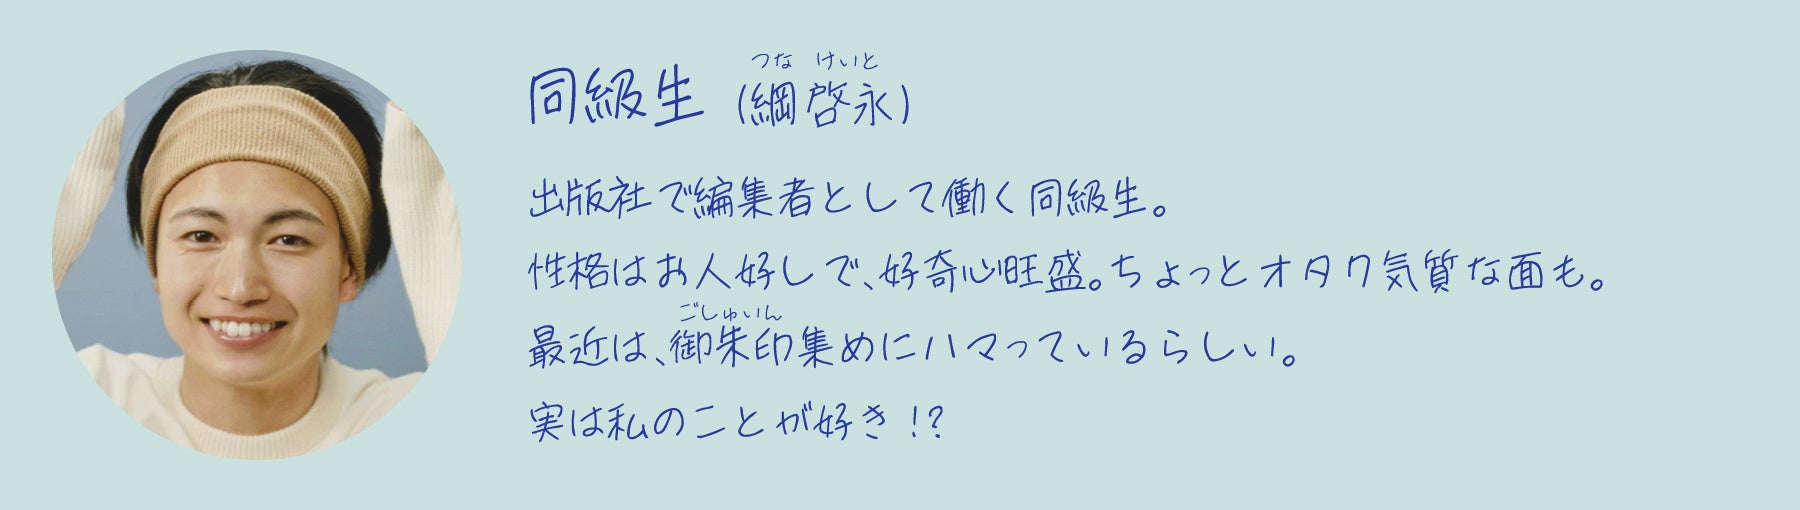 つな けいと
同級生 (綱啓永)
出版社で編集者として働く同級生。
性格はお人好しで、好奇心旺盛。ちょっとオタク気質な面も。
ごしゅいん
最近は、御朱印集めにハマっているらしい。
実は私のことが好き!?